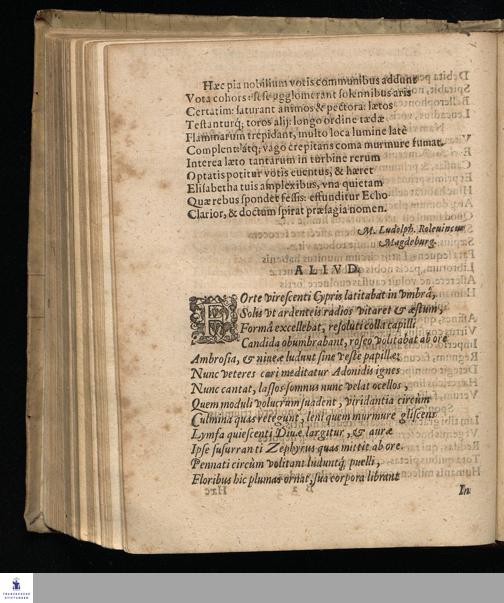 Hæc pia nobilium votis communibus addunt
Vota cohors: sese agglomerant solennibus aris
Certatim: saturant animos & pectora: lætos
Testanturq; toros alij: longo ordine tædæ
Flammarum trepidant, multo loca lumine latè
Complent: atq; vago crepitans coma murmure fumat.
Interea læto tantarum in turbine rerum
Optatis potitur votis euentus, & hæret
Elisabetha tuis amplexibus, vna quietam
Quæ rebus spondet fessis: effunditur Echo
Clarior, & doctum spirat præsagia nomen.
M. Ludolph. Roleuincus
Magdeburg.
ALIVD.
FOrte virescenti Cypris latitabat in vmbrâ,
Solis vt ardenteis radios vitaret & æstum;
Formâ excellebat, resoluti colla capilli
Candida obumbrabant, roseo volitabat ab ore
Ambrosia, & niueæ ludunt sine veste papillæ:
Nunc veteres cari meditatur Adonidis ignes
Nunc cantat, lassos somnus nunc velat ocellos,
Quem moduli volucrum suadent, viridantia circùm
Culmina quas retegunt, leni quem murmure gliscens
Lympha quiescenti Diuæ largitur, & auræ
Ipse susurranti Zephyrus quas mittit ab ore.
Pennati circùm volitant luduntq; puelli,
Floribus hic plumas ornat, sua corpora librant
In